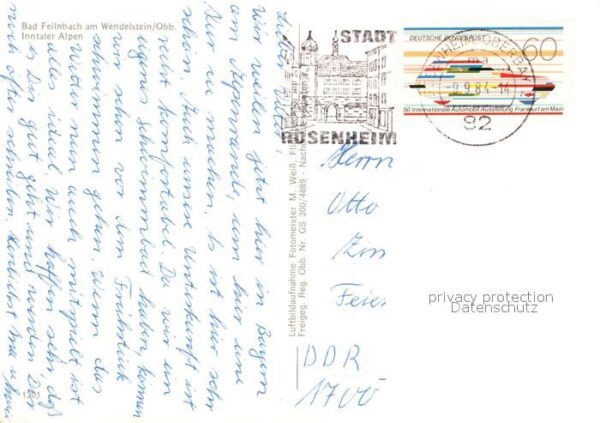 Bad Feilnbach am Wendelstein/Obb.
Inntaler Alpen
Lieber Otto,
wir sind jetzt hier in Bayern
am Alpenrand, um hier uns
zu erholen. Es ist hier sehr
schön, unsere Unterkunft ist
sehr komfortabel. Da wir ein
eigenes Schwimmbad haben, können
wir schon vor dem Frühstück
schwimmen gehen. Wenn das
Wetter nun auch mitspielt ist
alles ideal. Wir hoffen sehr daß
es Dir gut geht und werden Dir
noch oft schreiben. Herzlichst
1301
Luftbildaufnahme Fotomeister M. Weiß,
Freigeg. Reg. Obb. Nr. GS 300/4889 -
STADT
ROSENHEIM
DEUTSCHE BUNDESPOST
60
50. Internationale Automobil-Ausstellung Frankfurt am Main
ROSENHEIM, OBERBAY
-9.9.84-14
82
Herrn
Otto
DDR
1700
privacy protection
Datenschutz